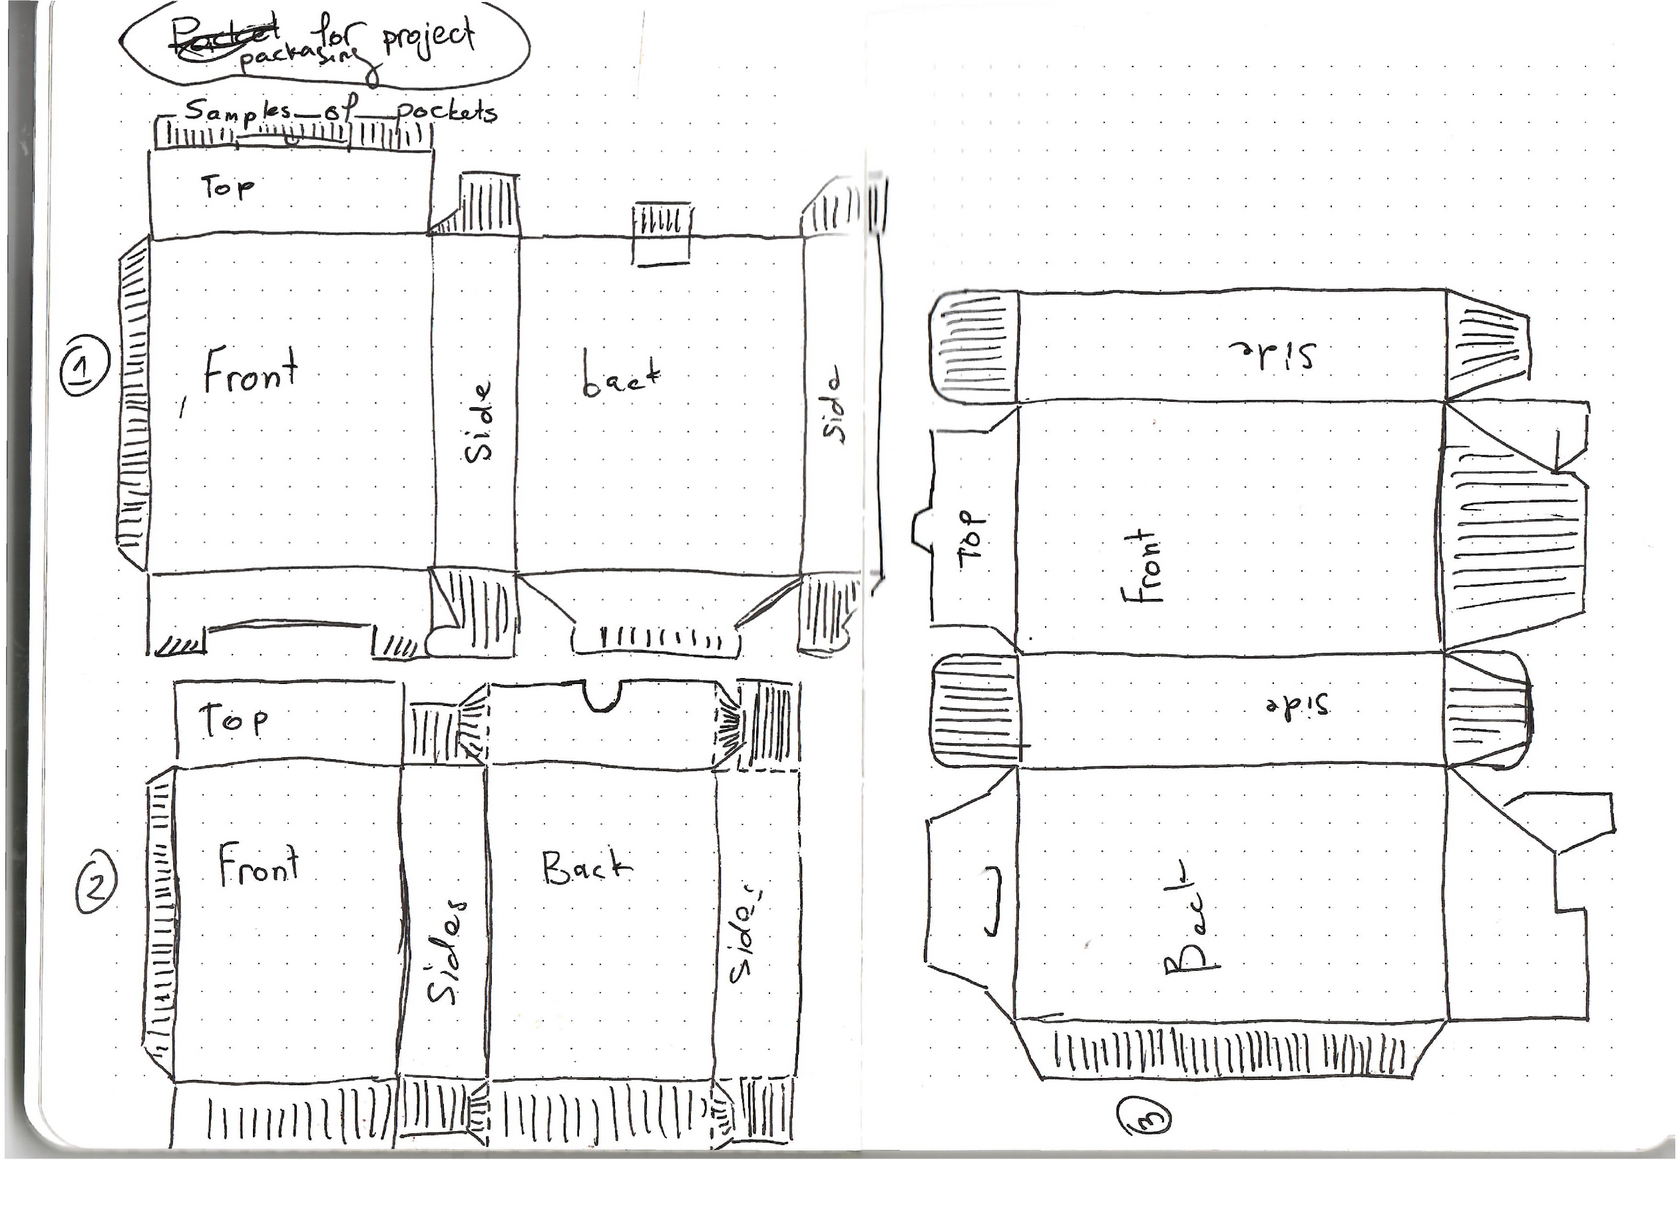 Packet for project
packaging
Samples of pockets
Top
1
Front
Side
back
Side
Top
2
Front
Sides
Back
Sides
Side
Top
Front
Side
Back
3